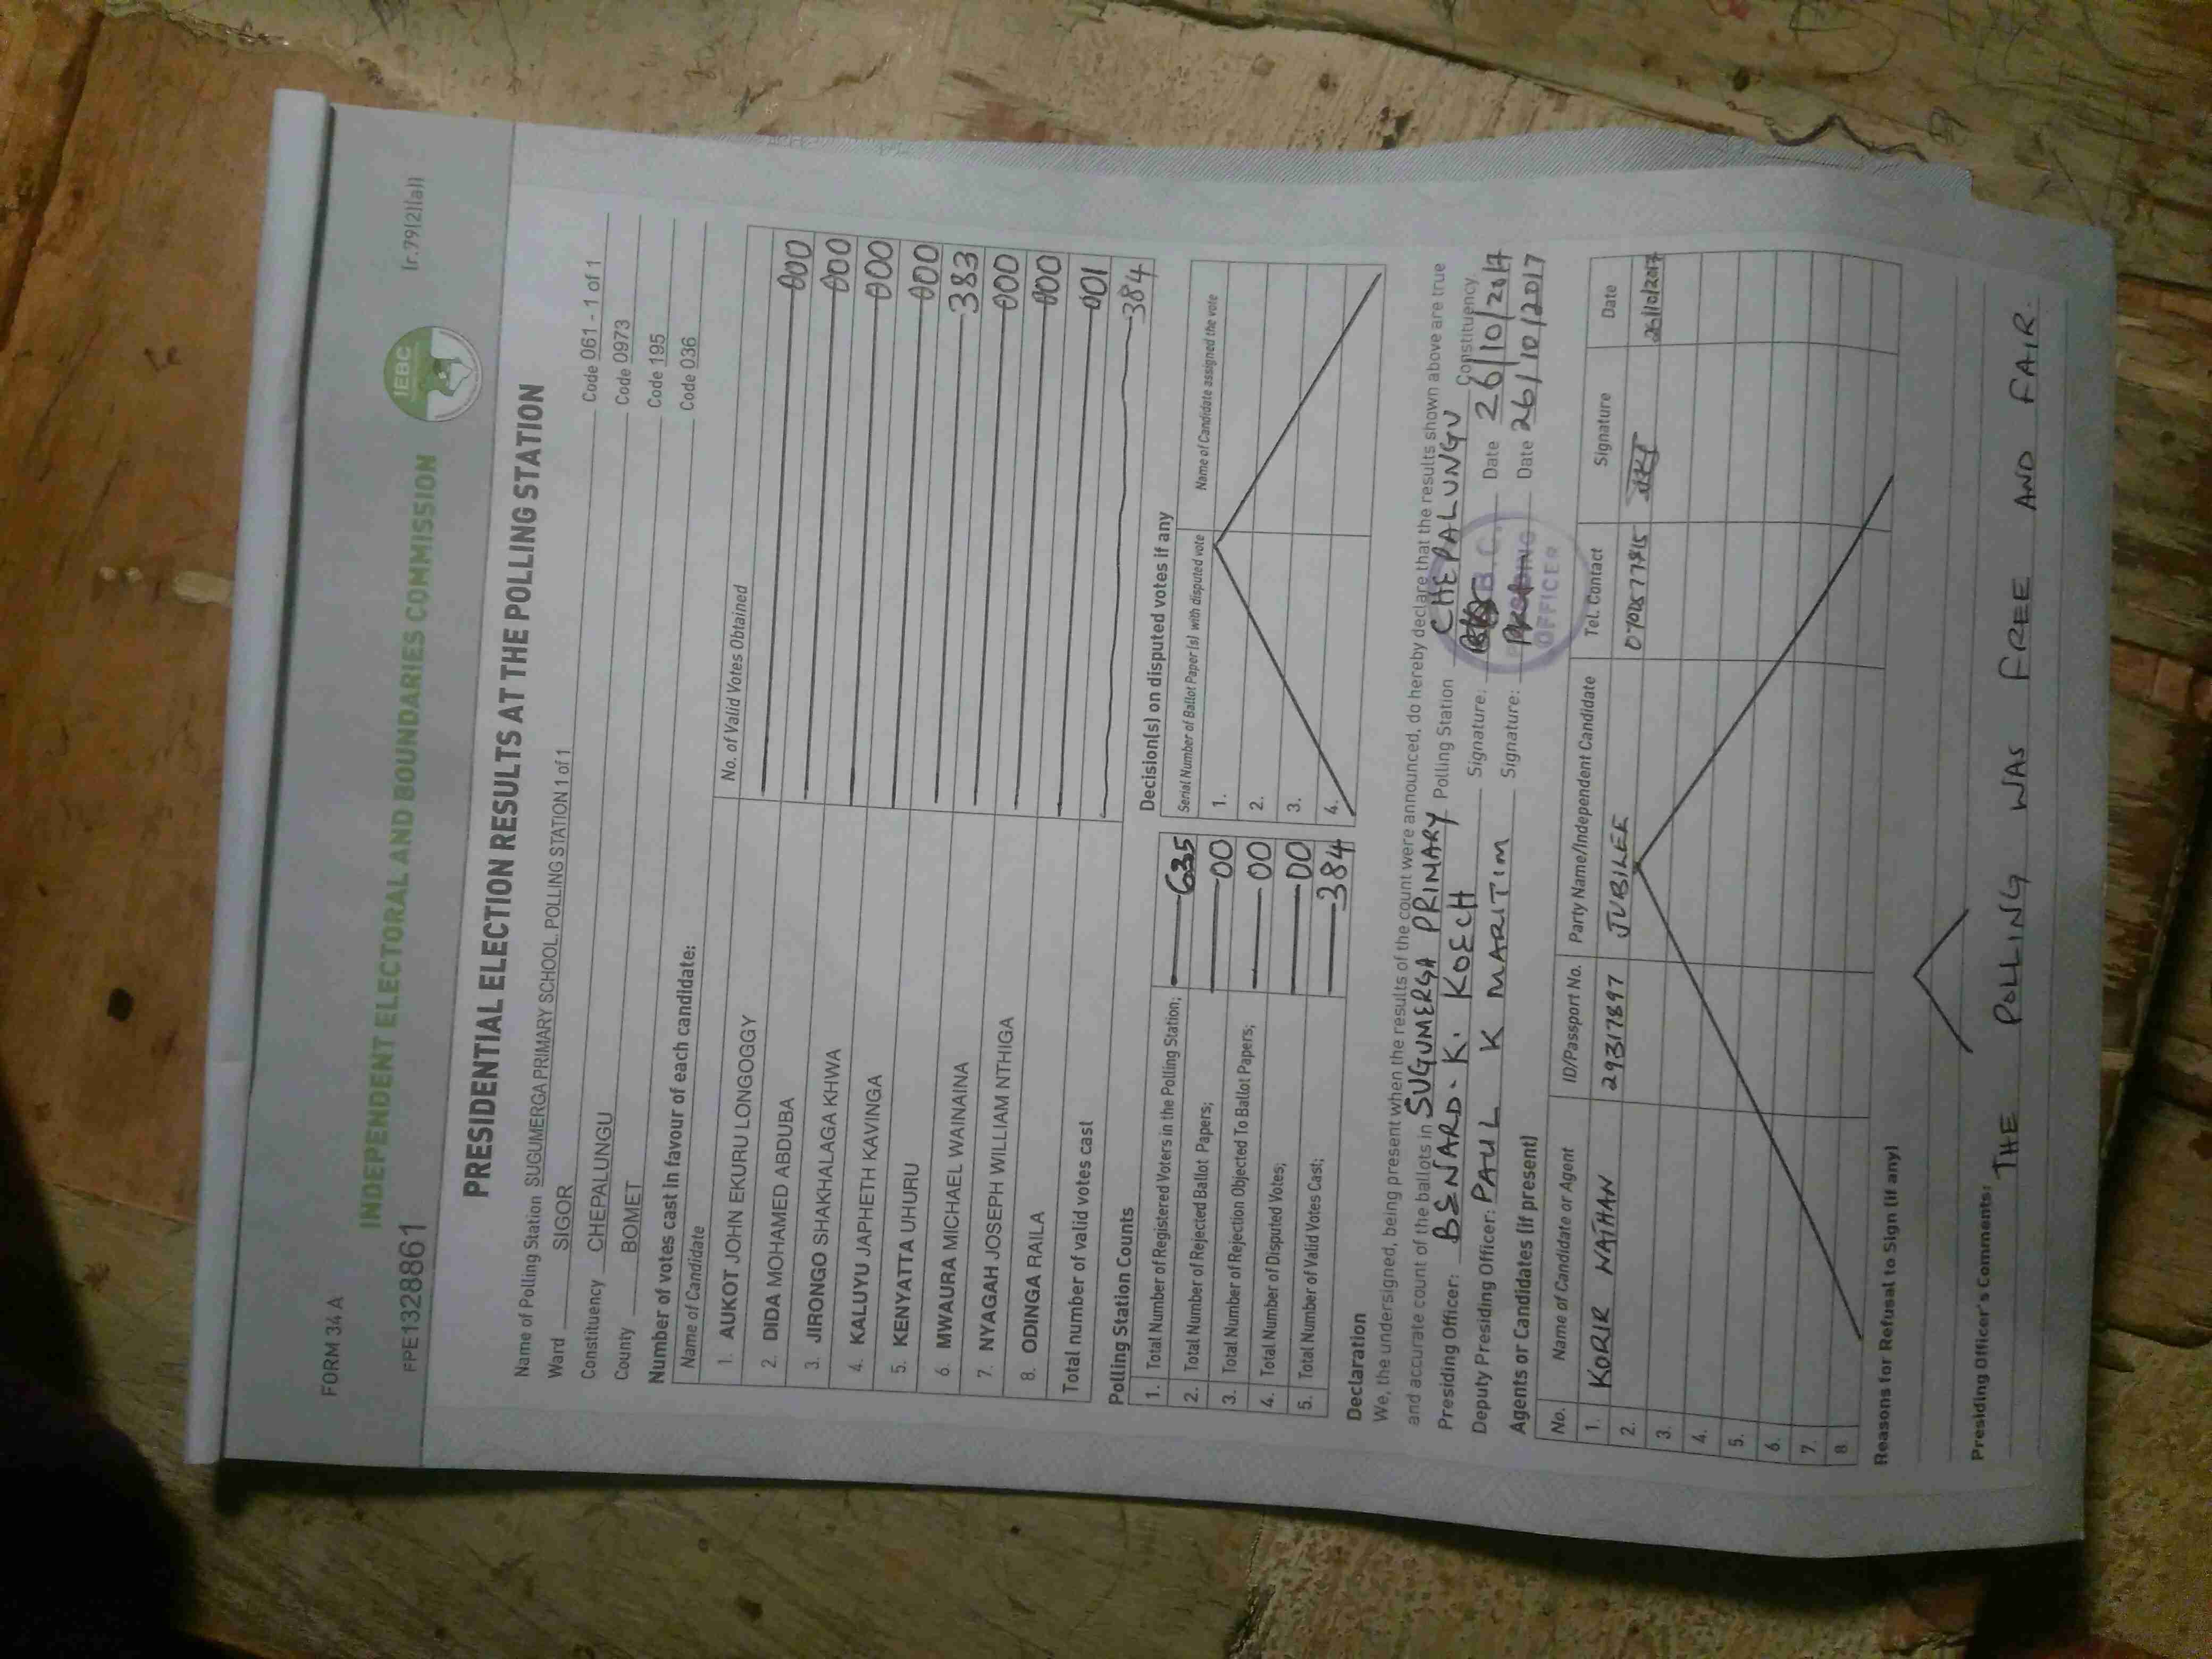 FORM 34 A
FPE1328861
Ir.79(2)(a)
INDEPENDENT ELECTORAL AND BOUNDARIES COMMISSION
IEBC
PRESIDENTIAL ELECTION RESULTS AT THE POLLING STATION
Name of Polling Station SUGUMERGA PRIMARY SCHOOL. POLLING STATION 1 of 1 Code 061 - 1 of 1
Ward SIGOR Code 0973
Constituency CHEPALUNGU Code 195
County BOMET Code 036
Number of votes cast in favour of each candidate:
Name of Candidate No. of Valid Votes Obtained
1. AUKOT JOHN EKURU LONGOGGY 000
2. DIDA MOHAMED ABDUBA 000
3. JIRONGO SHAKHALAGA KHWA 000
4. KALUYU JAPHETH KAVINGA 000
5. KENYATTA UHURU 383
6. MWAURA MICHAEL WAINAINA 000
7. NYAGAH JOSEPH WILLIAM NTHIGA 000
8. ODINGA RAILA 001
Total number of valid votes cast 384
Polling Station Counts
1. Total Number of Registered Voters in the Polling Station; 635
2. Total Number of Rejected Ballot Papers; 00
3. Total Number of Rejection Objected To Ballot Papers; 00
4. Total Number of Disputed Votes; 00
5. Total Number of Valid Votes Cast; 384
Decision(s) on disputed votes if any
Serial Number of Ballot Paper (s) with disputed vote Name of Candidate assigned the vote
1.
2.
3.
4.
Declaration
We, the undersigned, being present when the results of the count were announced, do hereby declare that the results shown above are true
and accurate count of the ballots in SUGUMERGA PRIMARY Polling Station CHEPALUNGU Constituency.
Presiding Officer: BENARD. K. KOECH Signature: Date 26/10/2017
Deputy Presiding Officer: PAUL K MARITIM Signature: Date 26/10/2017
PRESIDING
OFFICER
Agents or Candidates (if present)
No. Name of Candidate or Agent ID/Passport No. Party Name/Independent Candidate Tel. Contact Signature Date
1. KORIR NATHAN 29317897 JUBILEE 26/10/2017
2.
3.
4.
5.
6.
7.
8
Reasons for Refusal to Sign (if any)
Presiding Officer's Comments:
THE POLLING WAS FREE AND FAIR.